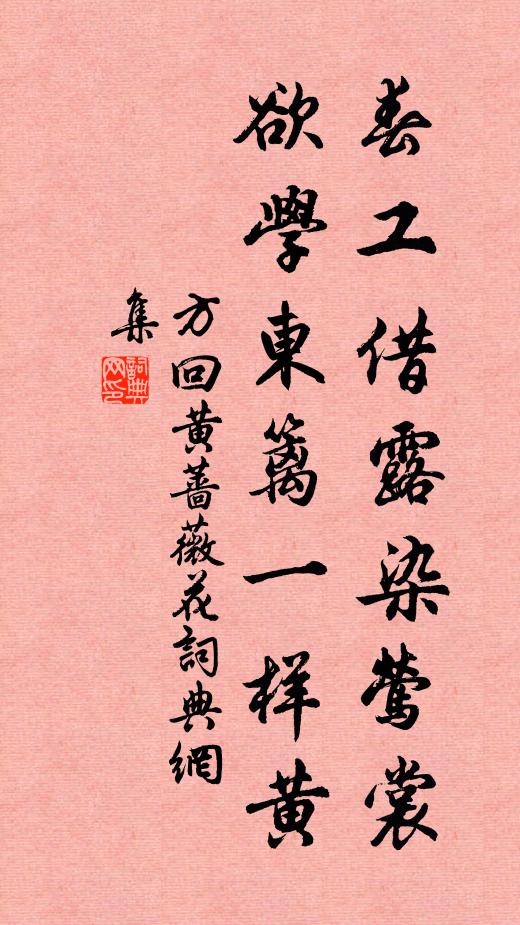 春工借露染鶯裳
欲學東籬一样黄
方回黄蔷薇花詞典網
集
詞典网印